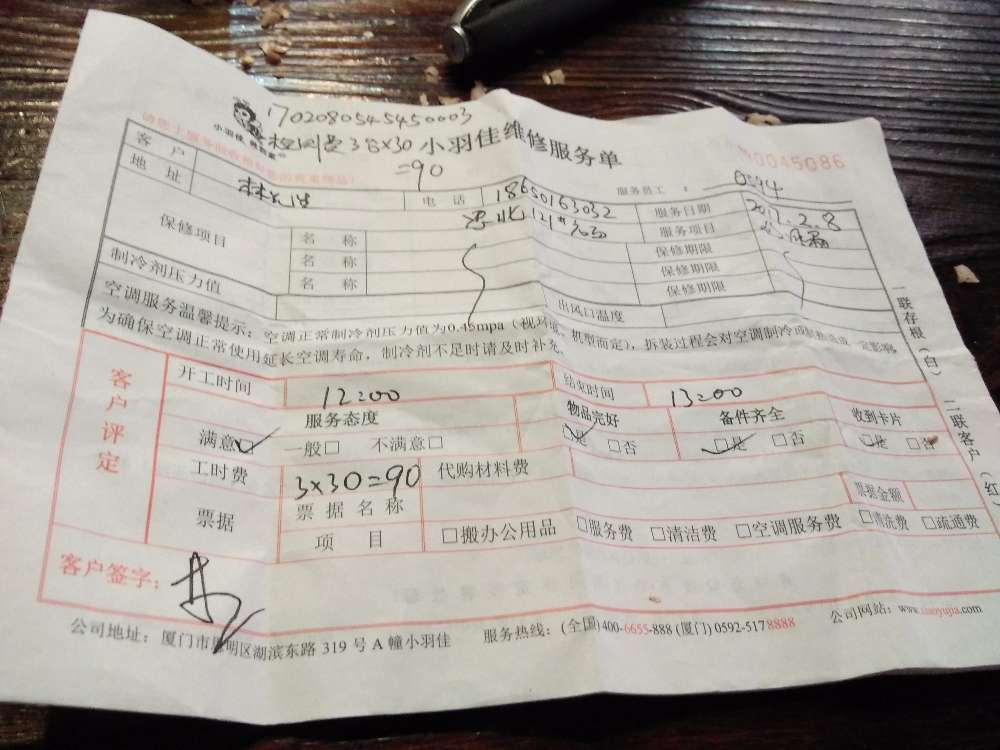 1702080545450003
小羽佳
3×30
=90
小羽佳维修服务单
0045086
服务员工：
0594
客 户
电 话
18650163032
服务日期
2017.2.8
地 址
服务项目
保修项目
名 称
保修期限
名 称
保修期限
名 称
保修期限
制冷剂压力值
出风口温度
空调服务温馨提示：空调正常制冷剂压力值为0.45mpa（视环境、机型而定），拆装过程会对空调制冷
为确保空调正常使用延长空调寿命，制冷剂不足时请及时补充。
一联存根（白）
二联客户（红
客户评定
开工时间
12:00
结束时间
13:00
服务态度
物品完好
备件齐全
收到卡片
满意☑ 一般□ 不满意□
☑是 □否
☑是 □否
☑是 □否
工时费
3×30=90
代购材料费
票据
票据名称
票据金额
项 目
□搬办公用品 □服务费 □清洁费 □空调服务费 □清洗费 □疏通费
客户签字：
公司地址：厦门市思明区湖滨东路 319 号 A 幢小羽佳
服务热线：(全国)400-6655-888 (厦门) 0592-5178888
公司网站：www.xiaoyujia.com